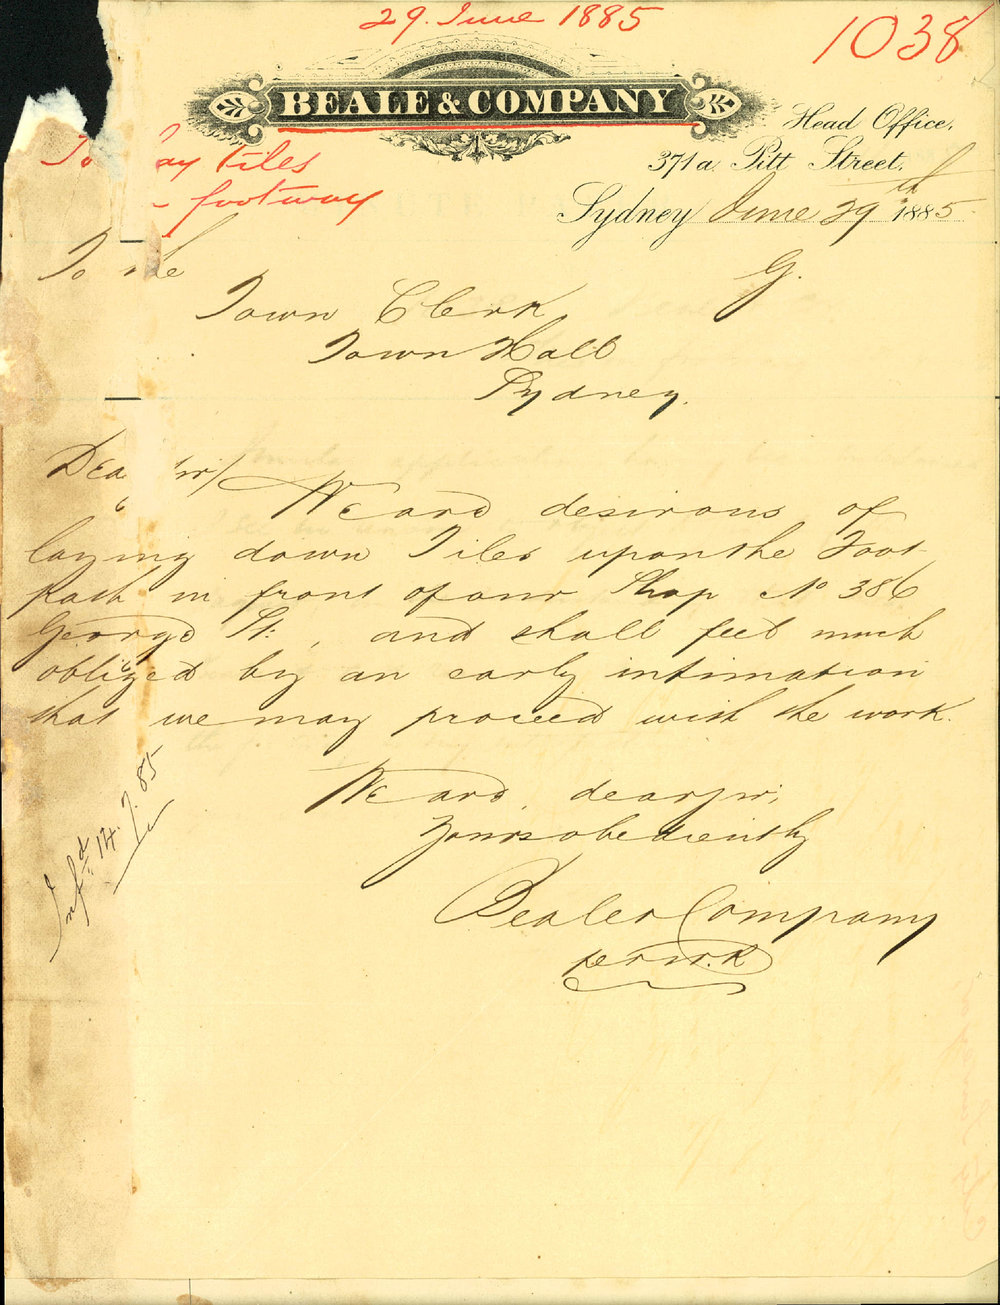 29. June 1885
1038
BEALE & COMPANY
Head Office,
371a Pitt Street,
To lay tiles
footway
Sydney June 29th 1885
To the
G.
Town Clerk
Town Hall
Sydney.
Dear Sir/
We are desirous of
laying down Tiles upon the Foot
path in front of our Shop No 386
George St:, and shall feel much
obliged by an early intimation
that we may proceed with the work.
We are, dear sir,
Yours obediently
Beale & Company
per
Infd. 14.7.85